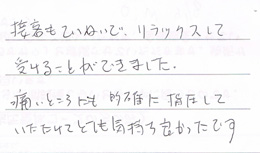 接客もていねいで、リラックスして
受けることができました。
痛いところにも的確に指圧して
いただいてとても気持ち良かったです